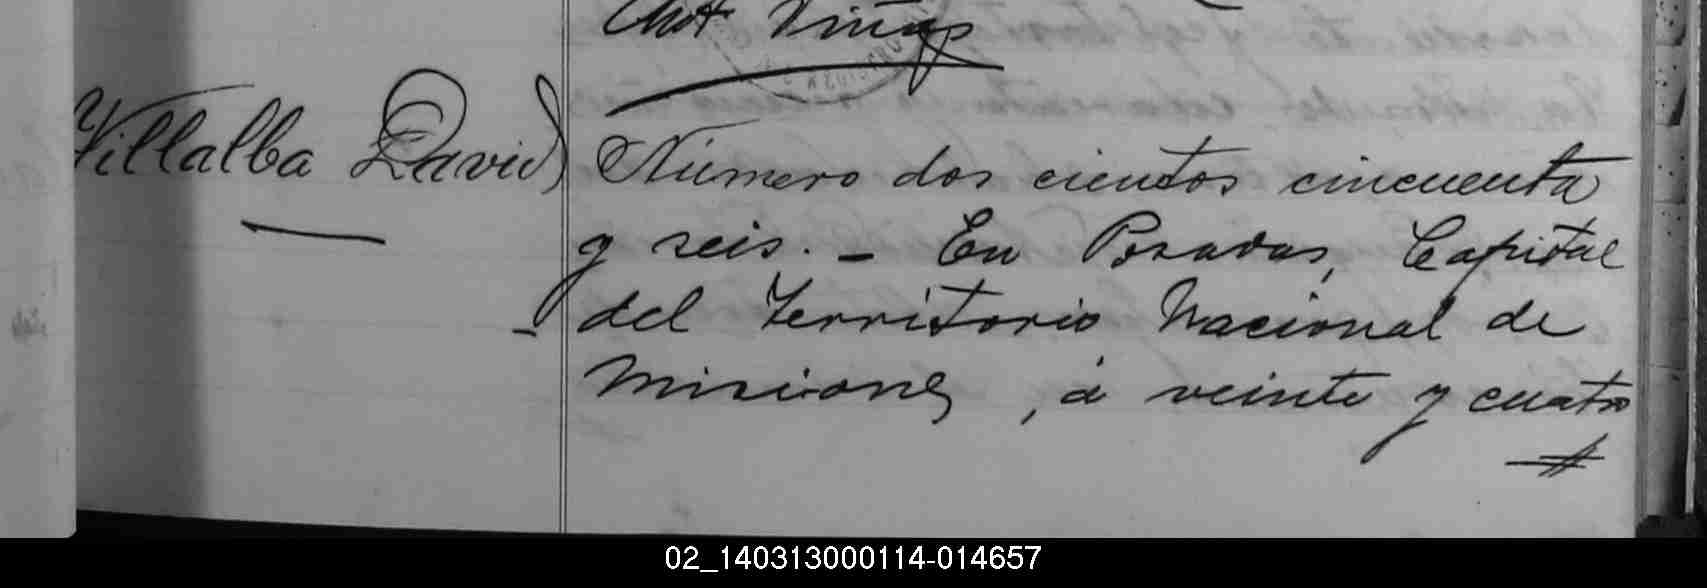 Viñas
Villalba David
Número dos cientos cincuenta
y seis. - En Posadas, Capital
del Territorio Nacional de
Misiones, á veinte y cuatro
02_140313000114-014657